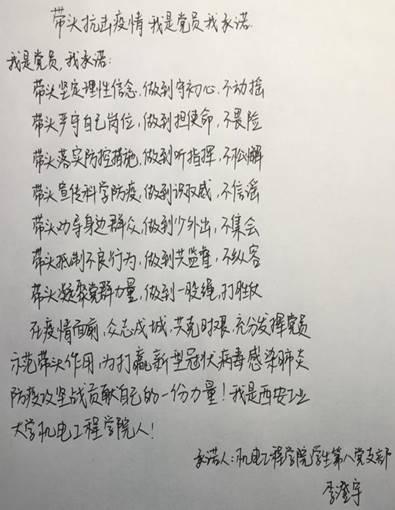 带头抗击疫情 我是党员我承诺
我是党员,我承诺:
带头坚定理性信念,做到守初心,不动摇
带头严守自己岗位,做到担使命,不畏险
带头落实防控措施,做到听指挥,不松懈
带头宣传科学防疫,做到识权威,不信谣
带头劝导身边群众,做到少外出,不集会
带头抵制不良行为,做到共监督,不纵容
带头凝聚党群力量,做到一股绳,打胜仗
在疫情面前,众志成城,共克时艰,充分发挥党员
示范带头作用,为打赢新型冠状病毒感染肺炎
防疫攻坚战贡献自己的一份力量!我是西安工业
大学机电工程学院人!
承诺人:机电工程学院学生第八党支部
李澄宇